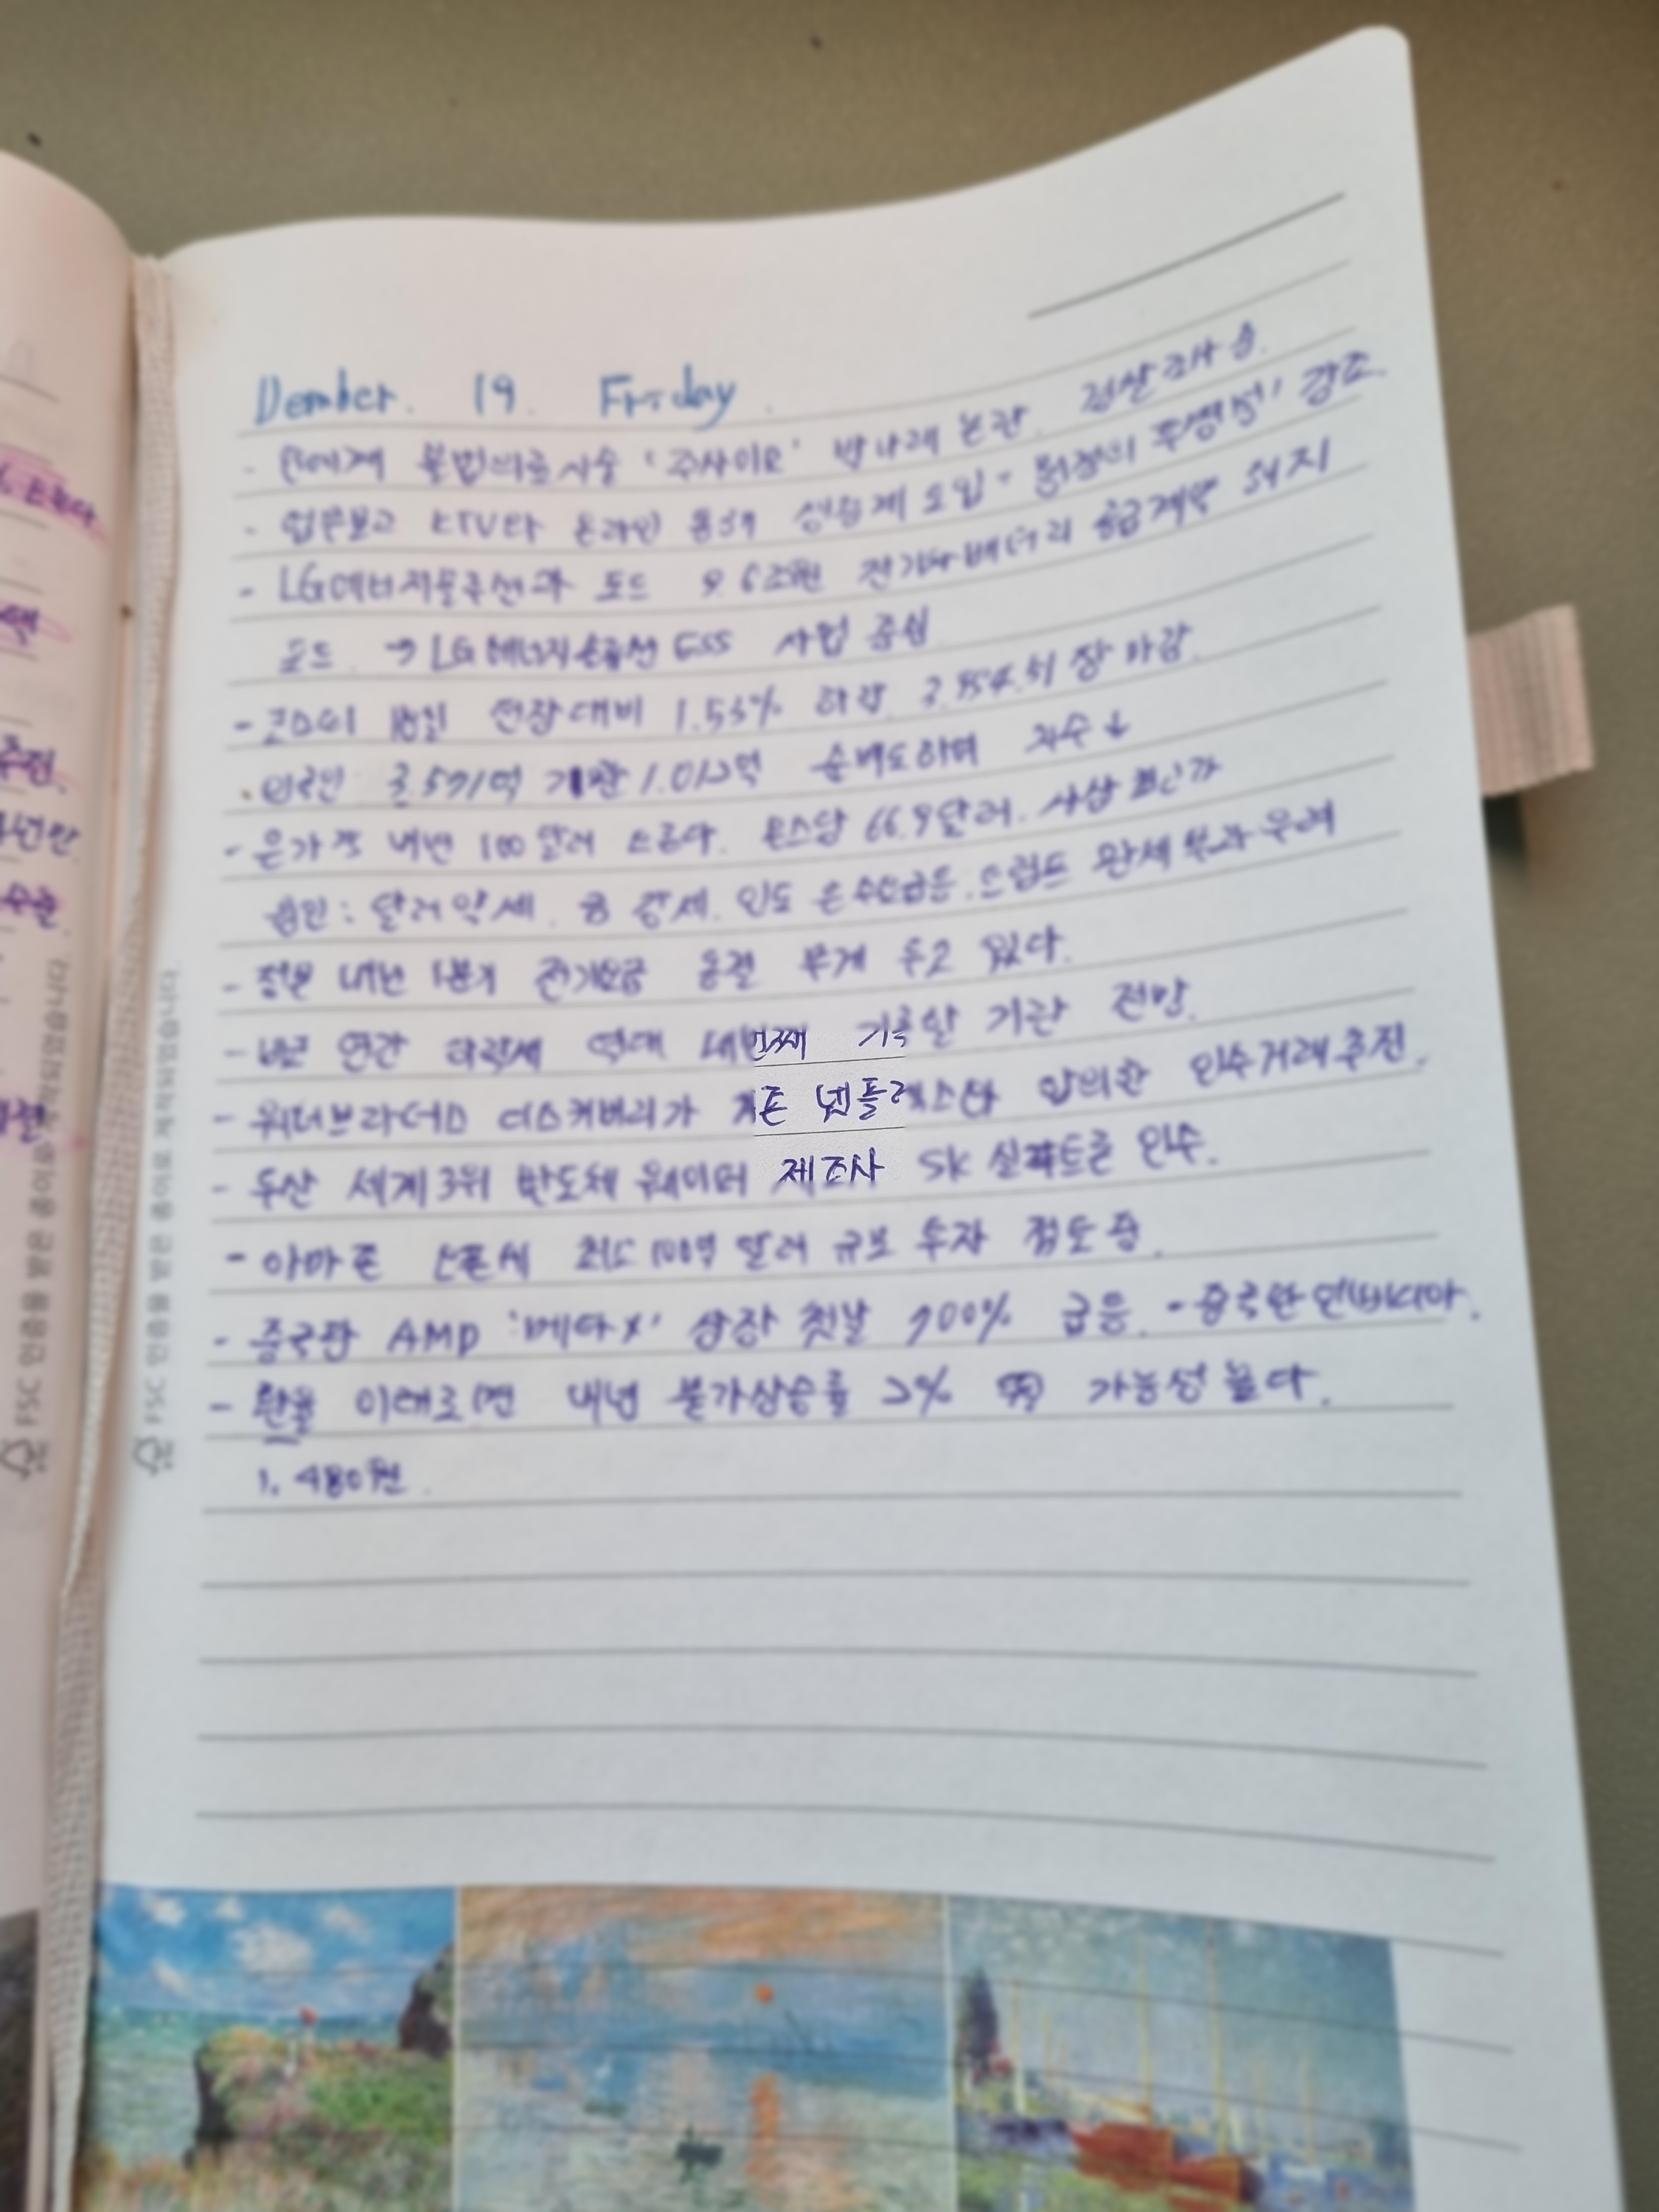 Dember. 19. Friday.
- 연예계 불법의료시술 '주사이모' 박나래 논란. 경찰조사 중.
- 업무보고 KTV와 온라인 통해 생중계 도입 - 행정의 투명성, 강조.
- LG에너지솔루션과 포드 9.6조원 전기차배터리 공급계약 해지
포드. → LG에너지솔루션 ESS 사업 중심
- 코스피 18일 전장대비 1.53% 하락 3.954.51 장 마감.
· 외국인 3.571억 기관 1.012억 순매도하며 지수 ↓
- 은가격 내년 100달러 온스당 66.9달러. 사상 최고가
요인 : 달러약세. 금 강세. 인도 은수요급등. 트럼프 관세 부과 우려
- 정부 내년 1분기 전기요금 동결 무게 두고 있다.
- 연간 하락세 역대 네번째 기록할 기관 전망.
- 워너브라더스 디스커버리가 기존 넷플릭스와 합의한 인수거래 추진.
- 두산 세계3위 반도체 웨이퍼 제조사 SK실트론 인수.
- 아마존 오픈AI 최소 100억 달러 규모 투자 검토 중.
- 중국판 AMD '메타X' 상장 첫날 700% 급등. - 중국판 엔비디아.
- 환율 이대로면 내년 물가상승률 2% 가능성 높다.
1.480원.
FSC 인증을 받은 종이로 제작되었습니다.
FSC 인증을 받은 종이로 제작되었습니다.